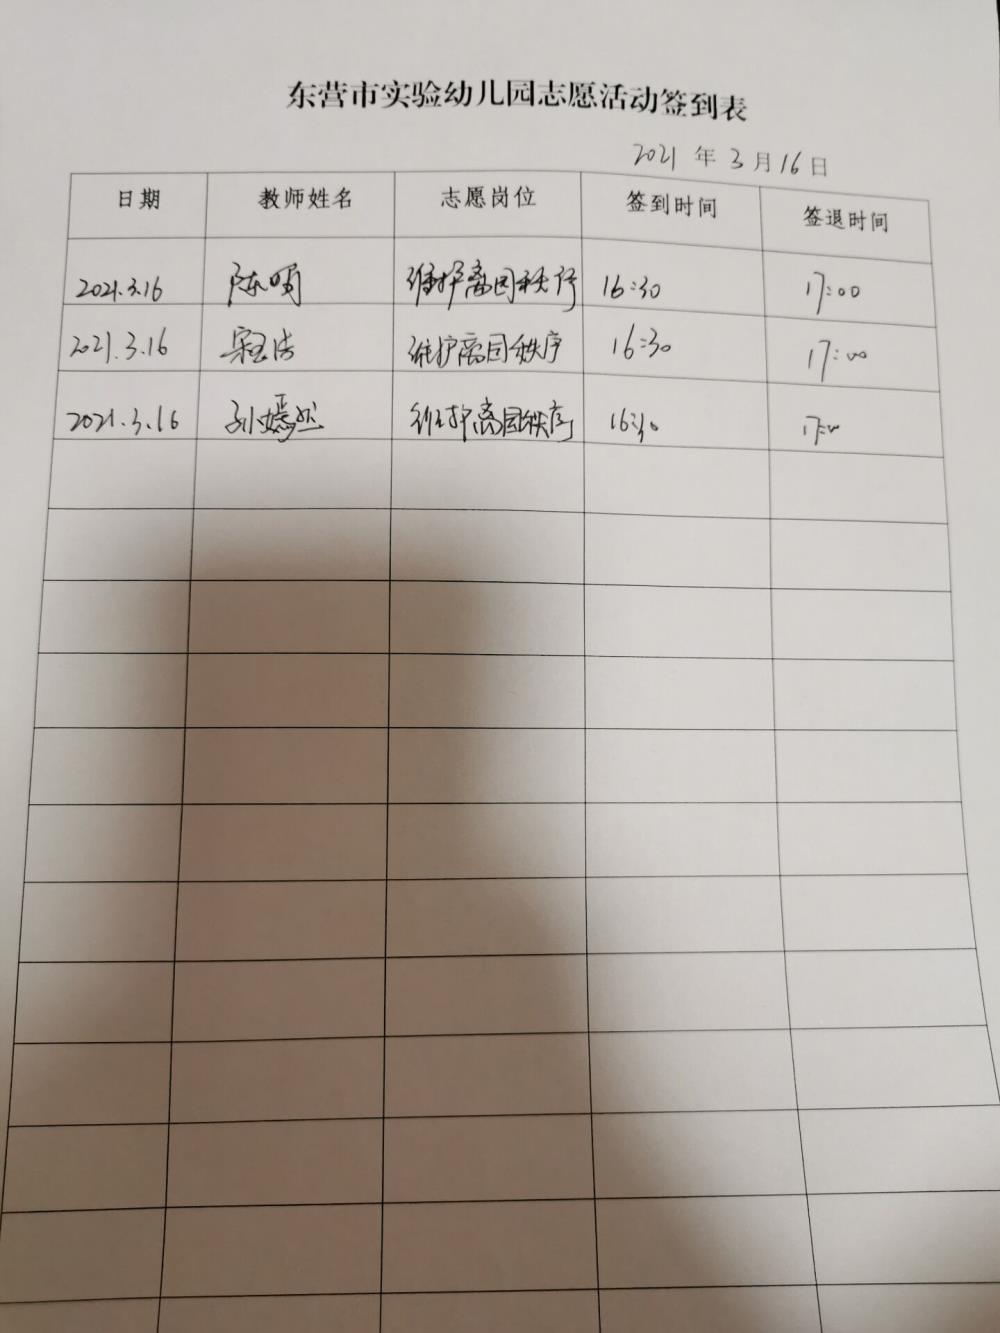 东营市实验幼儿园志愿活动签到表
2021 年 3 月 16 日
日期 教师姓名 志愿岗位 签到时间 签退时间
2021.3.16 陈明 维护离园秩序 16:30 17:00
2021.3.16 维护离园秩序 16:30 17:00
2021.3.16 孙嫣然 维护离园秩序 16:30 17:00